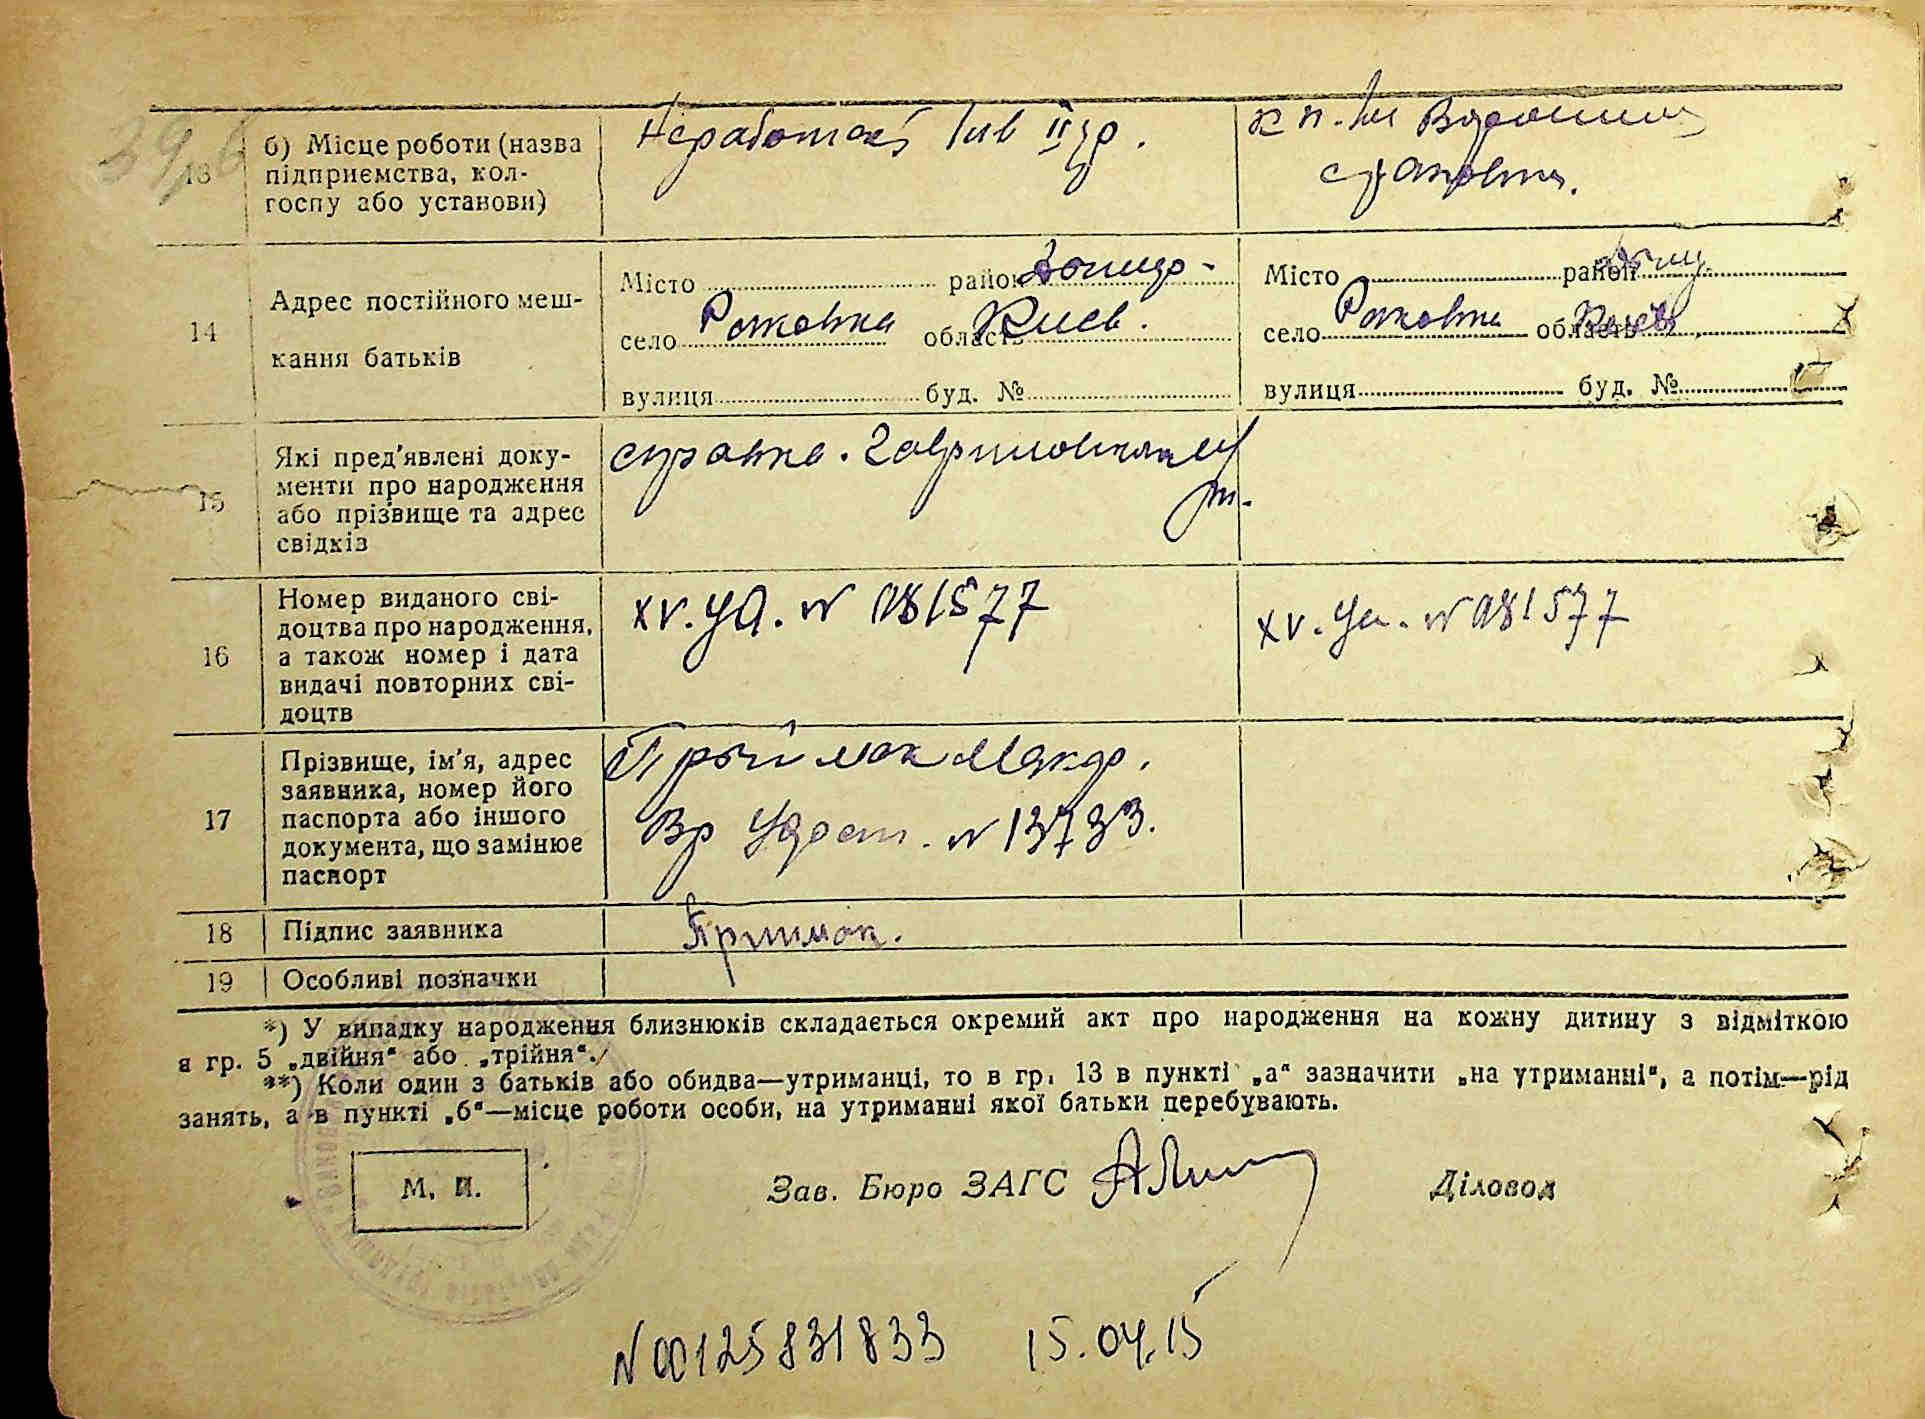 13
б) Місце роботи (назва
підприємства, кол-
госпу або установи)
Неработает инв II гр.
14
Адрес постійного меш-
кання батьків
Місто район
село Рожовка область Киев.
вулиця буд. №
Місто район
село Рожовка область Киев
вулиця буд. №
15
Які пред'явлені доку-
менти про народження
або прізвище та адрес
свідків
справка.
16
Номер виданого сві-
доцтва про народження,
а також номер і дата
видачі повторних сві-
доцтв
XV. УА. N 081577
XV. Уа. N 081577
17
Прізвище, ім'я, адрес
заявника, номер його
паспорта або іншого
документа, що замінює
паспорт
Вр Удост. N 13733.
18
Підпис заявника
19
Особливі позначки
*) У випадку народження близнюків складається окремий акт про народження на кожну дитину з відміткою
в гр. 5 „двійня“ або „трійня“.
**) Коли один з батьків або обидва—утриманці, то в гр. 13 в пункті „а“ зазначити „на утриманні“, а потім—рід
занять, а в пункті „б“—місце роботи особи, на утриманні якої батьки перебувають.
М. П.
Зав. Бюро ЗАГС
Діловод
N00125831833 15.04.15